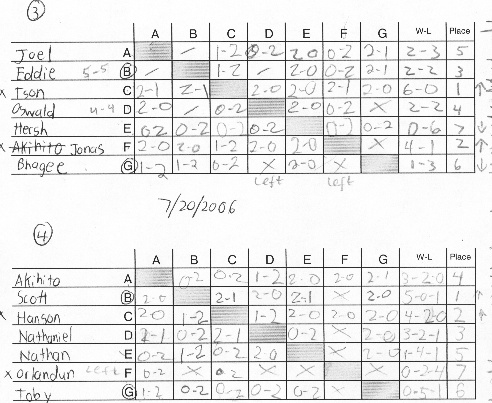 3
A B C D E F G W-L Place
Joel A 1-2 0-2 2-0 0-2 2-1 2-3 5
Eddie 5-5 B / 1-2 / 2-0 0-2 2-1 2-2 3
x Ison C 2-1 2-1 2-0 2-0 2-1 2-0 6-0 1 ↑
Oswald 4-4 D 2-0 / 0-2 2-0 0-2 x 2-2 4
Hersh E 0-2 0-2 0-2 0-2 0-2 0-2 0-6 7 ↓
x Akihito Jonas F 2-0 2-0 1-2 2-0 2-0 x 4-1 2 ↑
Bhagee G 1-2 1-2 0-2 x 2-0 x 1-3 6 ↓
Left Left
7/20/2006
4
A B C D E F G W-L Place
Akihito A 0-2 0-2 1-2 2-0 2-0 2-1 3-2-0 4
Scott B 2-0 2-1 2-0 2-1 x 2-0 5-0-1 1 ↑
x Hanson C 2-0 1-2 1-2 2-0 2-0 2-0 4-2-0 2 ↑
Nathaniel D 2-1 0-2 2-1 0-2 x 2-0 3-2-1 3
Nathan E 0-2 1-2 0-2 2-0 x 2-0 1-4-1 5
x Orlandun Left F 0-2 x 0-2 x x x 0-2-4 7
Toby G 1-2 0-2 0-2 0-2 0-2 x 0-5-1 6